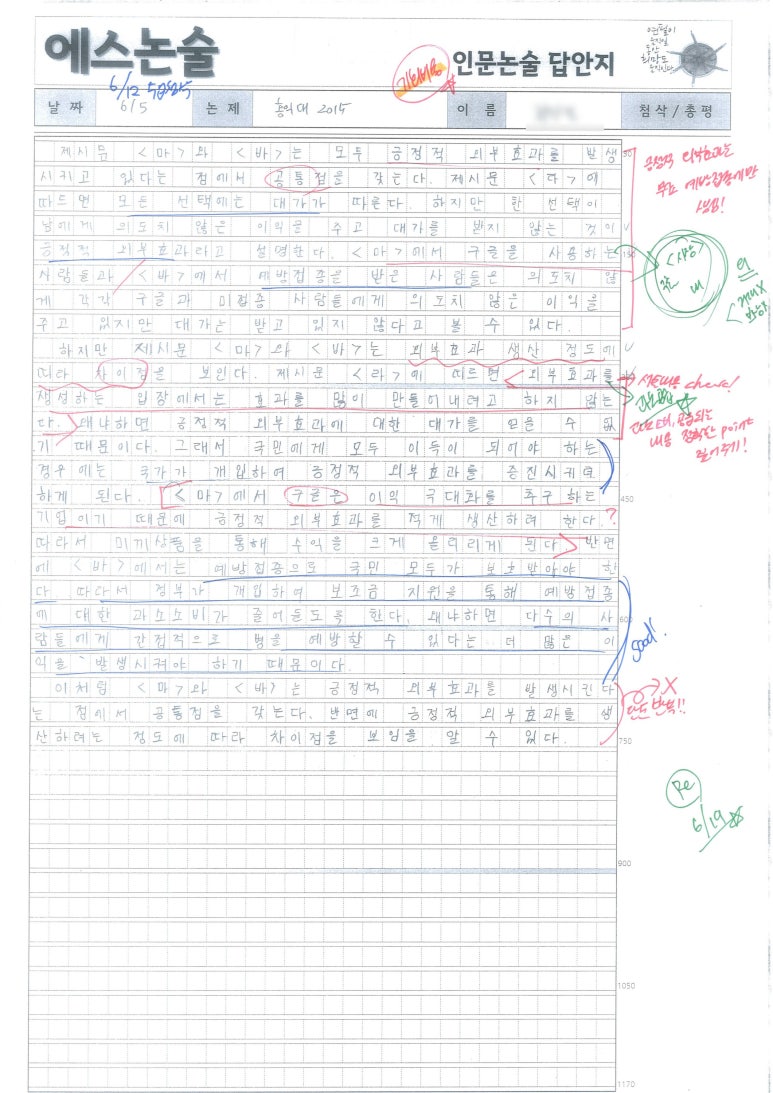 에스논술
인문논술 답안지
기회비용
6/12
날 짜
6/5
논 제
홍익대 2015
이 름
첨삭/총평
제시문 <마>와 <바>는 모두 긍정적 외부효과를 발생
시키고 있다는 점에서 공통점을 갖는다. 제시문 <다>에
따르면 모든 선택에는 대가가 따른다. 하지만 한 선택이
남에게 의도치 않은 이익을 주고 대가를 받지 않는 것이
긍정적 외부효과라고 설명한다. <마>에서 구글을 사용하는
사람들과 <바>에서 예방접종을 받은 사람들은 의도치 않
게 각각 구글과 미접종 사람들에게 의도치 않은 이익을
주고 있지만 대가는 받고 있지 않다고 볼 수 있다.
하지만 제시문 <마>와 <바>는 외부효과 생산 정도에
따라 차이점을 보인다. 제시문 <라>에 따르면 외부효과를
생성하는 입장에서는 효과를 많이 만들어내려고 하지 않는
다. 왜냐하면 긍정적 외부효과에 대한 대가를 얻을 수 없
기 때문이다. 그래서 국민에게 모두 이득이 되어야 하는
경우에는 국가가 개입하여 긍정적 외부효과를 증진시키려
하게 된다. <마>에서 구글은 이익 극대화를 추구하는
기업이기 때문에 긍정적 외부효과를 적게 생산하려 한다.
따라서 미끼상품을 통해 수익을 크게 올리려게 된다. 반면
에 <바>에서는 예방접종으로 국민 모두가 보호받아야 한
다. 따라서 정부가 개입하여 보조금 지원을 통해 예방접종
에 대한 과소소비가 줄어들도록 한다. 왜냐하면 다수의 사
람들에게 간접적으로 병을 예방할 수 있다는 더 많은 이
익을 발생시켜야 하기 때문이다.
이처럼 <마>와 <바>는 긍정적 외부효과를 발생시킨다
는 점에서 공통점을 갖는다. 반면에 긍정적 외부효과를 생
산하려는 정도에 따라 차이점을 보임을 알 수 있다.
50
150
450
600
750
900
1050
1170
긍정적 외부효과는
무료 예방접종에만
<시장>
내
외
check!
point
?
good!
단순 반복!!
X
Re
6/19